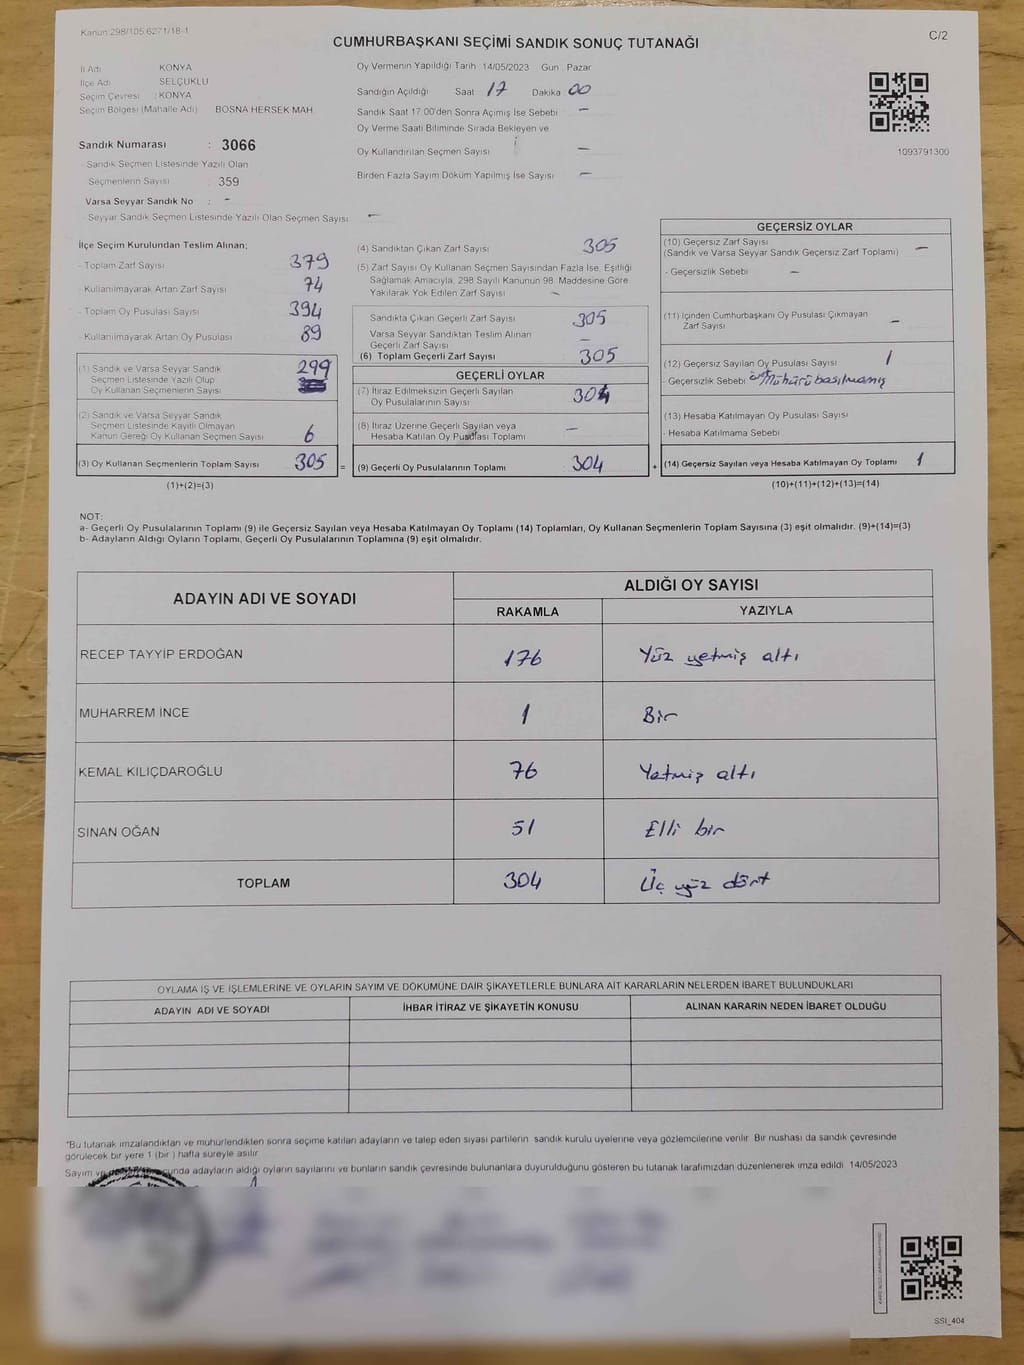 Kanun:298/105,6271/18-1
C/2
CUMHURBAŞKANI SEÇİMİ SANDIK SONUÇ TUTANAĞI
İl Adı KONYA
İlçe Adı SELÇUKLU
Seçim Çevresi : KONYA
Seçim Bölgesi (Mahalle Adı) BOSNA HERSEK MAH.
Oy Vermenin Yapıldığı Tarih :14/05/2023 Gün : Pazar
Sandığın Açıldığı Saat 17 Dakika 00
Sandık Saat 17:00'den Sonra Açılmış İse Sebebi -
Oy Verme Saati Bitiminde Sırada Bekleyen ve
Oy Kullandırılan Seçmen Sayısı -
Birden Fazla Sayım Döküm Yapılmış İse Sayısı -
1093791300
Sandık Numarası : 3066
- Sandık Seçmen Listesinde Yazılı Olan
Seçmenlerin Sayısı : 359
Varsa Seyyar Sandık No : -
- Seyyar Sandık Seçmen Listesinde Yazılı Olan Seçmen Sayısı: -
İlçe Seçim Kurulundan Teslim Alınan;
- Toplam Zarf Sayısı 379
- Kullanılmayarak Artan Zarf Sayısı 74
- Toplam Oy Pusulası Sayısı 394
- Kullanılmayarak Artan Oy Pusulası 89
(1) Sandık ve Varsa Seyyar Sandık
Seçmen Listesinde Yazılı Olup
Oy Kullanan Seçmenlerin Sayısı 299
(2) Sandık ve Varsa Seyyar Sandık
Seçmen Listesinde Kayıtlı Olmayan
Kanun Gereği Oy Kullanan Seçmen Sayısı 6
(3) Oy Kullanan Seçmenlerin Toplam Sayısı 305 =
(1)+(2)=(3)
(4) Sandıktan Çıkan Zarf Sayısı 305
(5) Zarf Sayısı Oy Kullanan Seçmen Sayısından Fazla İse, Eşitliği
Sağlamak Amacıyla, 298 Sayılı Kanunun 98. Maddesine Göre
Yakılarak Yok Edilen Zarf Sayısı -
Sandıkta Çıkan Geçerli Zarf Sayısı 305
Varsa Seyyar Sandıktan Teslim Alınan
Geçerli Zarf Sayısı -
(6) Toplam Geçerli Zarf Sayısı 305
GEÇERLİ OYLAR
(7) İtiraz Edilmeksizin Geçerli Sayılan
Oy Pusulalarının Sayısı 304
(8) İtiraz Üzerine Geçerli Sayılan veya
Hesaba Katılan Oy Pusulası Toplamı -
(9) Geçerli Oy Pusulalarının Toplamı 304 +
GEÇERSİZ OYLAR
(10) Geçersiz Zarf Sayısı
(Sandık ve Varsa Seyyar Sandık Geçersiz Zarf Toplamı) -
- Geçersizlik Sebebi -
(11) İçinden Cumhurbaşkanı Oy Pusulası Çıkmayan
Zarf Sayısı -
(12) Geçersiz Sayılan Oy Pusulası Sayısı 1
- Geçersizlik Sebebi Mühürü basılmamış
(13) Hesaba Katılmayan Oy Pusulası Sayısı
- Hesaba Katılmama Sebebi
(14) Geçersiz Sayılan veya Hesaba Katılmayan Oy Toplamı 1
(10)+(11)+(12)+(13)=(14)
NOT:
a- Geçerli Oy Pusulalarının Toplamı (9) ile Geçersiz Sayılan veya Hesaba Katılmayan Oy Toplamı (14) Toplamları, Oy Kullanan Seçmenlerin Toplam Sayısına (3) eşit olmalıdır. (9)+(14)=(3)
b- Adayların Aldığı Oyların Toplamı, Geçerli Oy Pusulalarının Toplamına (9) eşit olmalıdır.
ADAYIN ADI VE SOYADI
ALDIĞI OY SAYISI
RAKAMLA YAZIYLA
RECEP TAYYİP ERDOĞAN 176 Yüz yetmiş altı
MUHARREM İNCE 1 Bir
KEMAL KILIÇDAROĞLU 76 Yetmiş altı
SİNAN OĞAN 51 Elli bir
TOPLAM 304 Üç yüz dört
OYLAMA İŞ VE İŞLEMLERİNE VE OYLARIN SAYIM VE DÖKÜMÜNE DAİR ŞİKAYETLERLE BUNLARA AİT KARARLARIN NELERDEN İBARET BULUNDUKLARI
ADAYIN ADI VE SOYADI İHBAR İTİRAZ VE ŞİKAYETİN KONUSU ALINAN KARARIN NEDEN İBARET OLDUĞU
*Bu tutanak imzalandıktan ve mühürlendikten sonra seçime katılan adayların ve talep eden siyasi partilerin sandık kurulu üyelerine veya gözlemcilerine verilir. Bir nüshası da sandık çevresinde
görülecek bir yere 1 (bir ) hafta süreyle asılır.
Sayım ve adayların aldığı oyların sayılarını ve bunların sandık çevresinde bulunanlara duyurulduğunu gösteren bu tutanak tarafımızdan düzenlenerek imza edildi. 14/05/2023
SSI_404